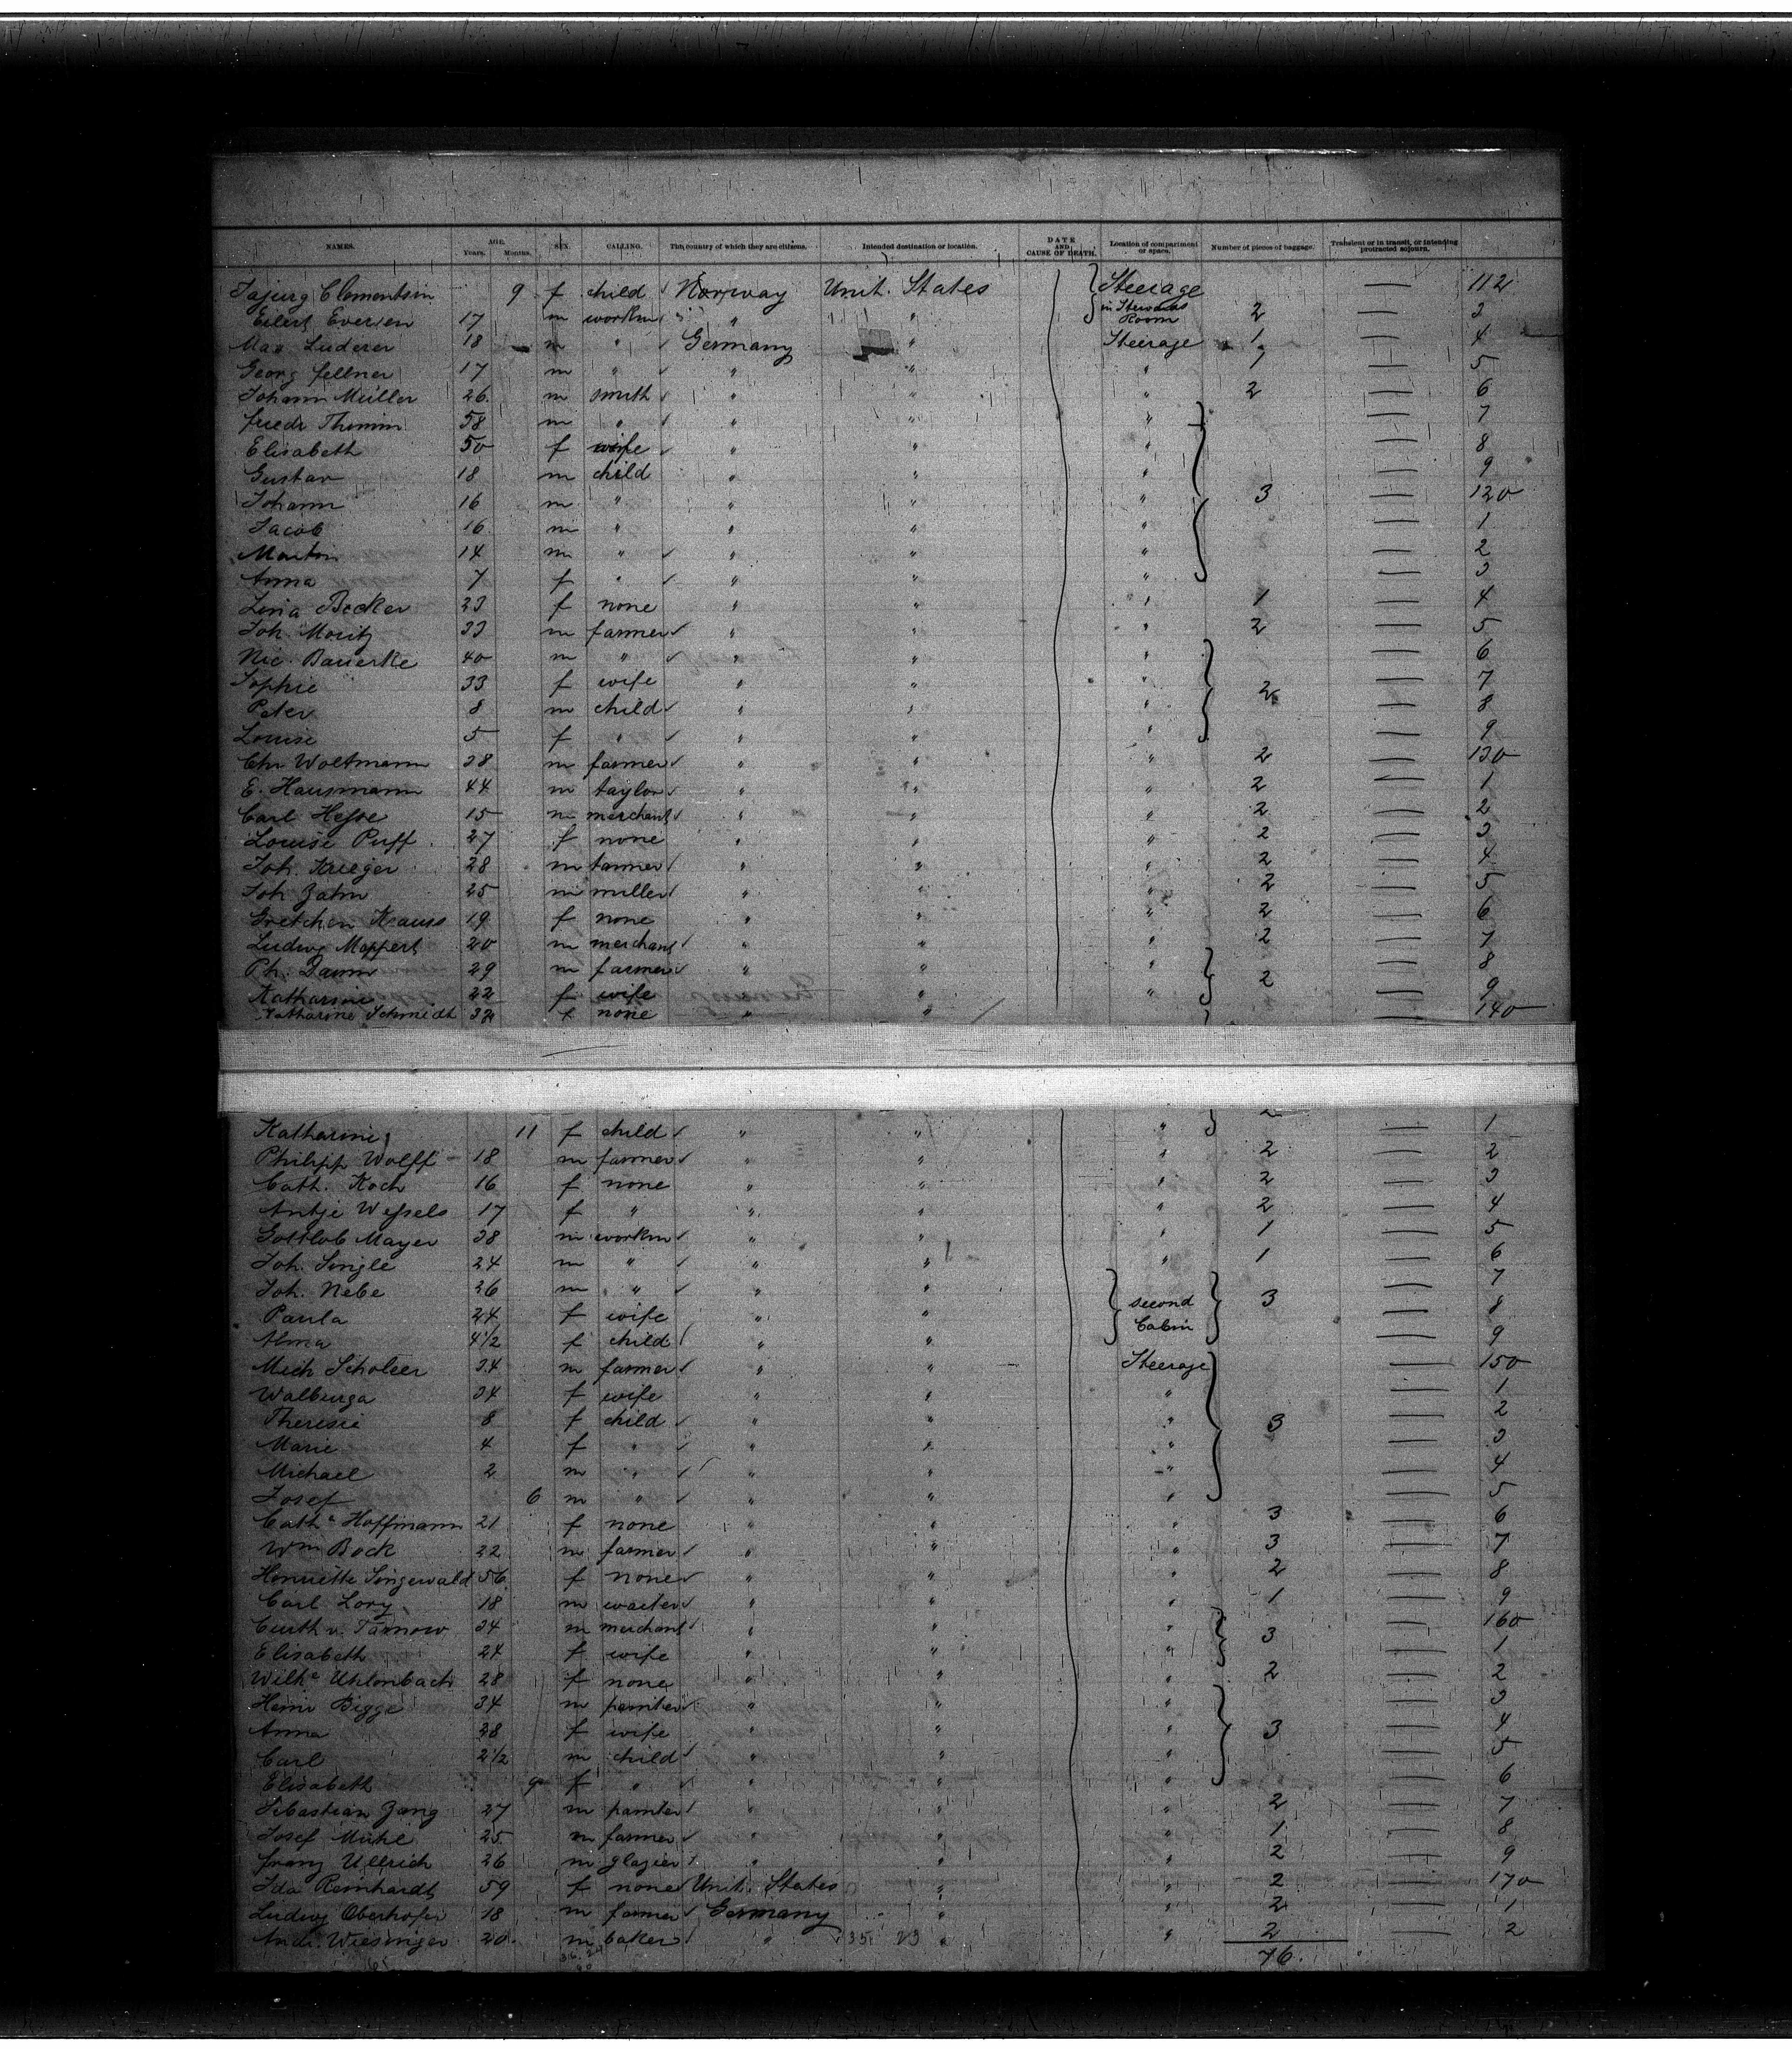 NAMES. AGE. Years. Months. SEX. CALLING. The country of which they are citizens. Intended destination or location. DATE AND CAUSE OF DEATH. Location of compartment or space. Number of pieces of baggage. Transient or in transit, or intending protracted sojourn.
Clementsen 9 f child Norway Unit. States Steerage — 112
Eilert Evensen 17 m workm " " in Stewards Room 2 — 3
Max Luderer 18 m " Germany " Steerage 1 — 4
Georg Fellner 17 m " " " " 1 — 5
Johann Müller 26 m smith " " " 2 — 6
Friedr Thimm 58 m " " " " — 7
Elisabeth 50 f wife " " " — 8
Gustav 18 m child " " " — 9
Johann 16 m " " " " 3 — 120
Jacob 16 m " " " " — 1
Martin 14 m " " " " — 2
Anna 7 f " " " " — 3
Lina Becker 23 f none " " " 1 — 4
Joh. Moritz 33 m farmer " " " 2 — 5
Nic. Bauerke 40 m " " " " — 6
Sophie 33 f wife " " " 2 — 7
Peter 8 m child " " " — 8
Louise 5 f " " " " — 9
Chr Woltmann 38 m farmer " " " 2 — 130
E. Hausmann 44 m taylor " " " 2 — 1
Carl Hesse 15 m merchant " " " 2 — 2
Louise Puff 27 f none " " " 2 — 3
Joh. Krieger 28 m farmer " " " 2 — 4
Joh Zahn 25 m miller " " " 2 — 5
Gretchen Krauss 19 f none " " " 2 — 6
Ludwig Moppert 20 m merchant " " " 2 — 7
Ph. Damm 29 m farmer " " " 2 — 8
Katharine 22 f wife " " " — 9
Katharine Schmidt 32 f none " " — 140
Katharine 11 f child " " " 2 — 1
Philipp Wolff 18 m farmer " " " 2 — 2
Cath. Koch 16 f none " " " 2 — 3
Antje Wessels 17 f " " " " 2 — 4
Gottlob Mayer 38 m workm " " " 1 — 5
Joh. Single 24 m " " " " 1 — 6
Joh. Nebe 26 m " " " second Cabin 3 — 7
Paula 24 f wife " " — 8
Alma 4½ f child " " — 9
Mich 34 m farmer " " Steerage — 150
Walburga 34 f wife " " " — 1
Theresie 8 f child " " " 3 — 2
Marie 4 f " " " " — 3
Michael 2 m " " " " — 4
Josef 6 m " " " " — 5
Cath.a Hoffmann 21 f none " " " 3 — 6
Wm Bock 22 m farmer " " " 3 — 7
Henriette Singewald 56 f none " " " 2 — 8
Carl Lory 18 m waiter " " " 1 — 9
Curth v. Tarnow 34 m merchant " " " 3 — 160
Elisabeth 24 f wife " " " — 1
Wilh.e Uhlenbach 28 f none " " " 2 — 2
Heinr Bigge 34 m painter " " " — 3
Anna 28 f wife " " " 3 — 4
Carl 2½ m child " " " — 5
Elisabeth 9 f " " " " — 6
Sebastian Zang 27 m painter " " " 2 — 7
Josef Mühl 25 m farmer " " " 1 — 8
Franz Ullrich 26 m glazier " " " 2 — 9
Ida Reinhardt 59 f none Unit. States " " 2 — 170
Ludwig Oberhofer 18 m farmer Germany " " 2 — 1
Andr. Wiesinger 20 m baker " 35 23 " " 2 — 2
76.